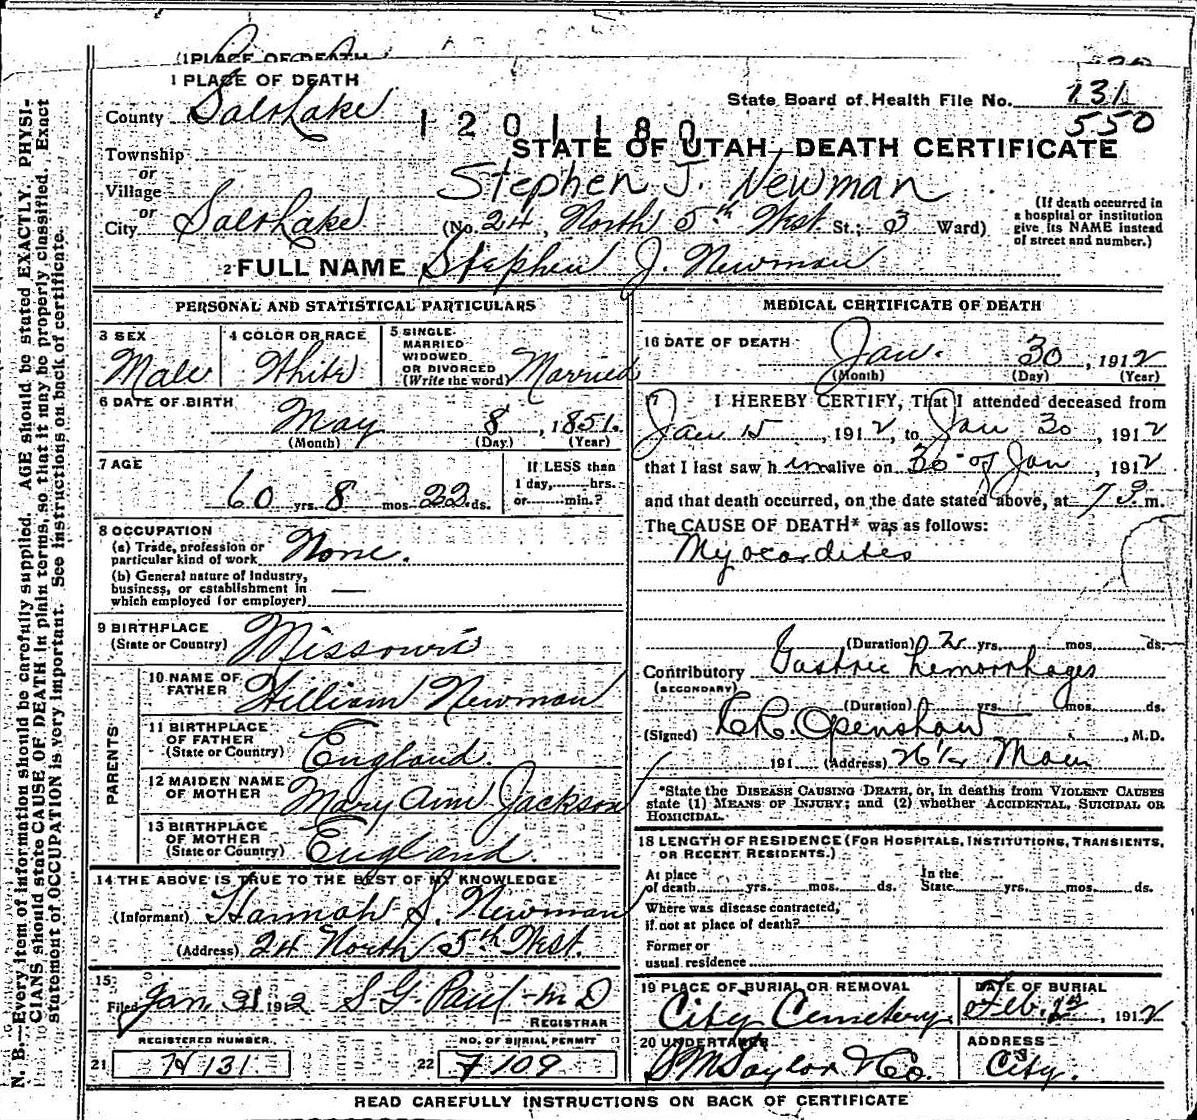 1 PLACE OF DEATH
1 PLACE OF DEATH
County Salt Lake
1201180
State Board of Health File No. 131
550
STATE OF UTAH—DEATH CERTIFICATE
Township
or
Village
or
Stephen J. Newman
City Salt Lake (No. 24, North 5th West St.; 3 Ward)
(If death occurred in a hospital or institution give its NAME instead of street and number.)
2 FULL NAME Stephen J. Newman
PERSONAL AND STATISTICAL PARTICULARS
3 SEX
Male
4 COLOR OR RACE
White
5 SINGLE MARRIED WIDOWED OR DIVORCED (Write the word) Married
6 DATE OF BIRTH
May 8, 1851.
(Month) (Day) (Year)
7 AGE
60 yrs. 8 mos. 22 ds.
If LESS than
1 day, hrs.
or min.?
8 OCCUPATION
(a) Trade, profession or
particular kind of work None.
(b) General nature of Industry,
business, or establishment in
which employed (or employer) —
9 BIRTHPLACE
(State or Country) Missouri
PARENTS
10 NAME OF
FATHER William Newman
11 BIRTHPLACE
OF FATHER
(State or Country) England.
12 MAIDEN NAME
OF MOTHER Mary Ann Jackson
13 BIRTHPLACE
OF MOTHER
(State or Country) England.
14 THE ABOVE IS TRUE TO THE BEST OF MY KNOWLEDGE
(Informant) Hannah S. Newman
(Address) 24 North 5th West.
15
Filed Jan 31 1912 S G Paul - M D
REGISTRAR
REGISTERED NUMBER
21 H 131
NO. OF BURIAL PERMIT
22 7109
MEDICAL CERTIFICATE OF DEATH
16 DATE OF DEATH
Jan. 30, 1912
(Month) (Day) (Year)
17 I HEREBY CERTIFY, That I attended deceased from
Jan 15, 1912, to Jan 30, 1912
that I last saw h im alive on 30 of Jan, 1912
and that death occurred, on the date stated above, at m.
The CAUSE OF DEATH* was as follows:
Myocardites
(Duration) 2 yrs. mos. ds.
Contributory Gastric hemorrhages
(SECONDARY)
(Duration) yrs. mos. ds.
(Signed) Openshaw, M.D.
191 (Address) Main
*State the DISEASE CAUSING DEATH, or, in deaths from VIOLENT CAUSES
state (1) MEANS OF INJURY; and (2) whether ACCIDENTAL, SUICIDAL OR
HOMICIDAL.
18 LENGTH OF RESIDENCE (FOR HOSPITALS, INSTITUTIONS, TRANSIENTS,
OR RECENT RESIDENTS.)
At place
of death yrs. mos. ds.
In the
State yrs. mos. ds.
Where was disease contracted,
if not at place of death?
Former or
usual residence
19 PLACE OF BURIAL OR REMOVAL
City Cemetery.
DATE OF BURIAL
Feb. 1912
20 UNDERTAKER
S M Taylor & Co.
ADDRESS
City.
READ CAREFULLY INSTRUCTIONS ON BACK OF CERTIFICATE
N. B.—Every item of information should be carefully supplied. AGE should be stated EXACTLY. PHYSI-
CIANS should state CAUSE OF DEATH in plain terms, so that it may be properly classified. Exact
statement of OCCUPATION is very important. See instructions on back of certificate.